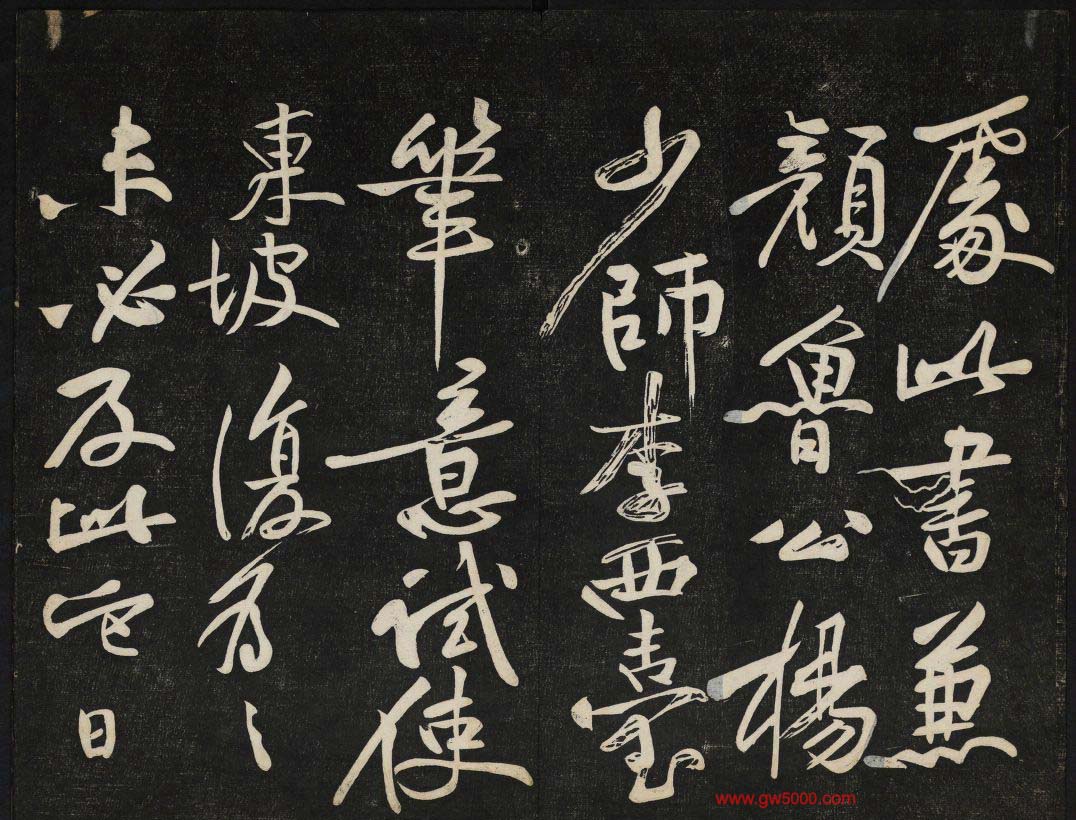 處此書兼
顏魯公楊
少師李西臺
筆意試使
東坡復為之
未必及此它日
www.gw5000.com